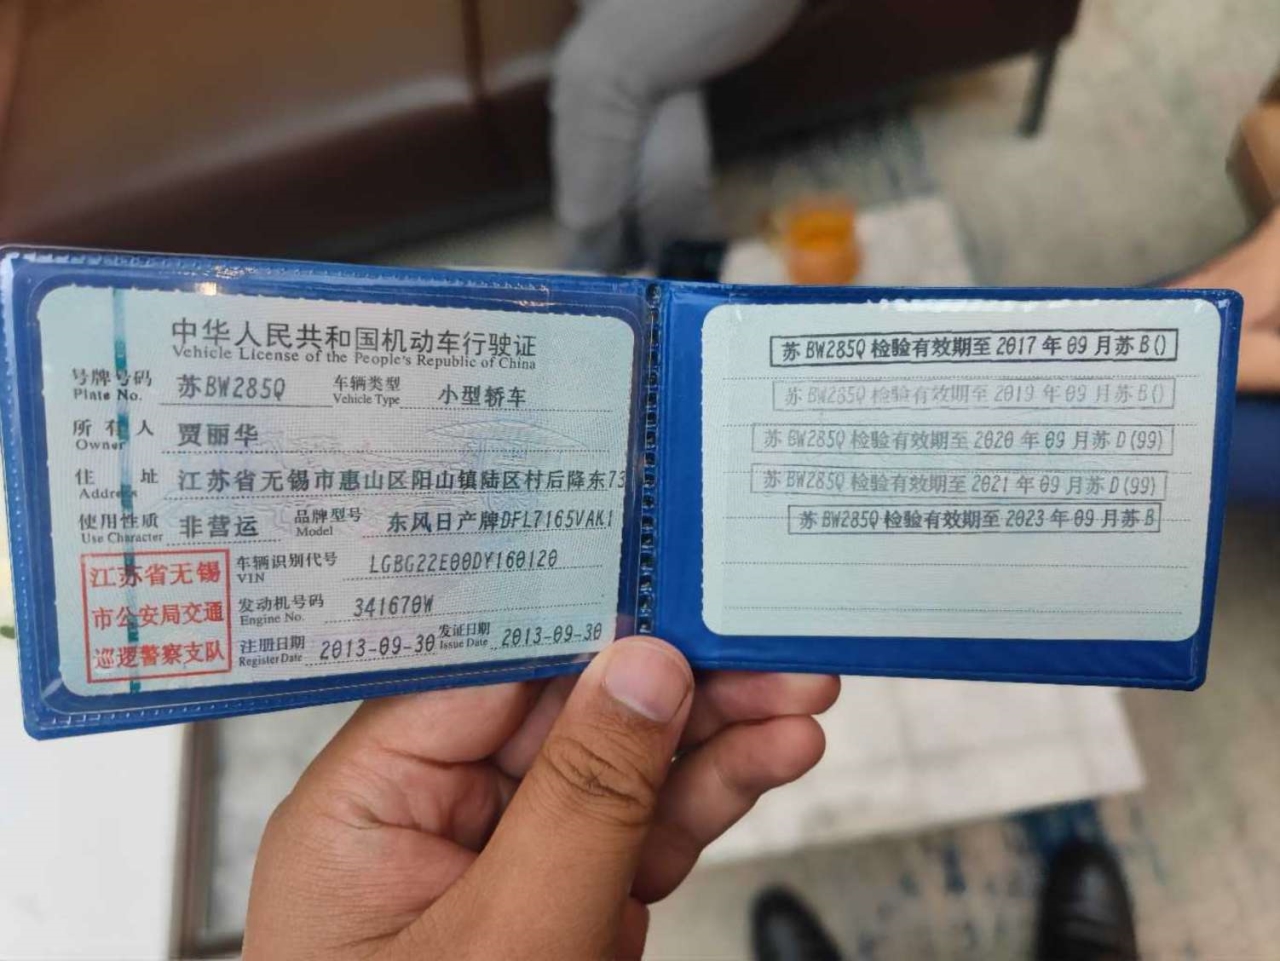 中华人民共和国机动车行驶证
Vehicle License of the People's Republic of China
号牌号码 苏BW285Q 车辆类型 小型轿车
Plate No. Vehicle Type
所有人 贾丽华
Owner
住址 江苏省无锡市惠山区阳山镇陆区村后降东73
Address
使用性质 非营运 品牌型号 东风日产牌DFL7165VAK1
Use Character Model
江苏省无锡
市公安局交通
巡逻警察支队
车辆识别代号 LGBG22E00DY160120
VIN
发动机号码 341670W
Engine No.
注册日期 2013-09-30 发证日期 2013-09-30
Register Date Issue Date
苏BW285Q检验有效期至2017年09月苏B()
苏BW285Q检验有效期至2019年09月苏B()
苏BW285Q检验有效期至2020年09月苏D(99)
苏BW285Q检验有效期至2021年09月苏D(99)
苏BW285Q检验有效期至2023年09月苏B